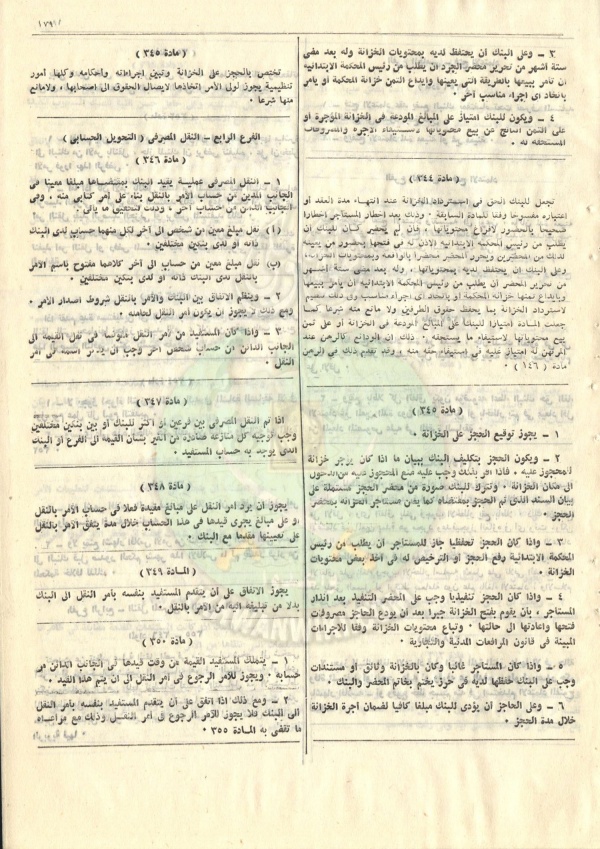 ١٧٩
٣ – وعلى البنك أن يحتفظ لديه بمحتويات الخزانة وله بعد مضى
ستة أشهر من تحرير محضر الجرد أن يطلب من رئيس المحكمة الابتدائية
أن يأمر ببيعها بالطريقة التى يعينها وايداع الثمن خزانة المحكمة أو يأمر
باتخاذ أى اجراء مناسب آخر .
٤ – ويكون للبنك امتياز على المبالغ المودعة فى الخزانة المؤجرة أو
على الثمن الناتج من بيع محتوياتها لاستيفاء الاجرة والمصروفات
المستحقة له .
( مادة ٣٤٤ )
تجعل للبنك الحق فى استرداد الخزانة عند انتهاء مدة العقد أو
اعتباره مفسوخا وفقا للمادة السابقة . وذلك بعد اخطار المستأجر اخطارا
صحيحا بالحضور لافراغ محتوياتها ، فان لم يحضر كان للبنك أن
يطلب من رئيس المحكمة الابتدائية الاذن له فى فتحها بحضور من يعينه
لذلك من المحضرين ويحرر المحضر محضرا بالواقعة وبمحتويات الخزانة
وعلى البنك أن يحتفظ لديه بمحتوياتها ، وله بعد مضى ستة أشهر
من تحرير المحضر أن يطلب من رئيس المحكمة الابتدائية أن يأمر ببيعها
وايداع ثمنها خزانة المحكمة أو باتخاذ أى اجراء مناسب وفى ذلك تنظيم
لاسترداد الخزانة بما يحفظ حقوق الطرفين ولا مانع منه شرعا كما
جعلت المادة امتيازا للبنك على المبالغ المودعة فى الخزانة أو على ثمن
بيع محتوياتها لاستيفاء ما يستحقه . ذلك أن الودائع كالرهن عند
المرتهن له امتياز عليه فى استيفاء حقه منه ، وقد تقدم ذلك فى الرهن
مادة ( ١٤٦ )
( مادة ٣٤٥ )
١ – يجوز توقيع الحجز على الخزانة .
٢ – ويكون الحجز بتكليف البنك ببيان ما اذا كان يؤجر خزانة
للمحجوز عليه . فاذا أقر بذلك وجب عليه منع المحجوز عليه من الدخول
الى مكان الخزانة . وتترك للبنك صورة من محضر الحجز مشتملة على
بيان السند الذى تم الحجز بمقتضاه كما يعلن مستأجر الخزانة بمحضر
الحجز .
٣ – واذا كان الحجز تحفظيا جاز للمستأجر أن يطلب من رئيس
المحكمة الابتدائية رفع الحجز أو الترخيص له فى أخذ بعض محتويات
الخزانة .
٤ – واذا كان الحجز تنفيذيا وجب على المحضر التنفيذ بعد انذار
المستأجر ، بأن يقوم بفتح الخزانة جبرا بعد أن يودع الحاجز مصروفات
فتحها واعادتها الى حالتها . وتباع محتويات الخزانة وفقا للاجراءات
المبينة فى قانون المرافعات المدنية والتجارية .
٥ – واذا كان المستأجر غائبا وكان بالخزانة وثائق أو مستندات
وجب على البنك حفظها لديه فى حرز يختم بخاتم المحضر والبنك .
٦ – وعلى الحاجز أن يؤدى للبنك مبلغا كافيا لضمان أجرة الخزانة
خلال مدة الحجز .
( مادة ٣٤٥ )
تختص بالحجز على الخزانة وتبين اجراءاته وأحكامه وكلها أمور
تنظيمية يجوز لولى الأمر اتخاذها لايصال الحقوق الى أصحابها ، ولامانع
منها شرعا .
الفرع الرابع – النقل المصرفى ( التحويل الحسابى )
( مادة ٣٤٦ )
١ – النقل المصرفى عملية يقيد البنك بمقتضاها مبلغا معينا فى
الجانب المدين من حساب الآمر بالنقل بناء على أمر كتابى منه ، وفى
الجانب الدائن من حساب آخر . وذلك لتحقيق ما يأتى .
( أ ) نقل مبلغ معين من شخص الى آخر لكل منهما حساب لدى البنك
ذاته أو لدى بنكين مختلفين .
(ب) نقل مبلغ معين من حساب الى آخر كلاهما مفتوح باسم الآمر
بالنقل لدى البنك ذاته أو لدى بنكين مختلفين .
٢ – وينظم الاتفاق بين البنك والآمر بالنقل شروط اصدار الأمر .
ومع ذلك لا يجوز أن يكون أمر النقل لحامله .
٣ – واذا كان المستفيد من أمر النقل مفوضا فى نقل القيمة الى
الجانب الدائن من حساب شخص آخر وجب أن يذكر اسمه فى أمر
النقل .
( مادة ٣٤٧ )
اذا تم النقل المصرفى بين فرعين أو أكثر للبنك أو بين بنكين مختلفين
وجب توجيه كل منازعة صادرة من الغير بشأن القيمة الى الفرع أو البنك
الذى يوجد به حساب المستفيد .
( مادة ٣٤٨ )
يجوز أن يرد أمر النقل على مبالغ مقيدة فعلا فى حساب الآمر بالنقل
أو على مبالغ يجرى قيدها فى هذا الحساب خلال مدة يتفق الآمر بالنقل
على تعيينها مقدما مع البنك .
( المادة ٣٤٩ )
يجوز الاتفاق على أن يتقدم المستفيد بنفسه بأمر النقل الى البنك
بدلا من تبليغه اليه من الآمر بالنقل .
( مادة ٣٥٠ )
١ – يتملك المستفيد القيمة من وقت قيدها فى الجانب الدائن من
حسابه . ويجوز للآمر الرجوع فى أمر النقل الى أن يتم هذا القيد .
٢ – ومع ذلك اذا اتفق على أن يتقدم المستفيد بنفسه بأمر النقل
الى البنك فلا يجوز للآمر الرجوع فى أمر النقل وذلك مع مراعاة
ما تقضى به المادة ٣٥٥